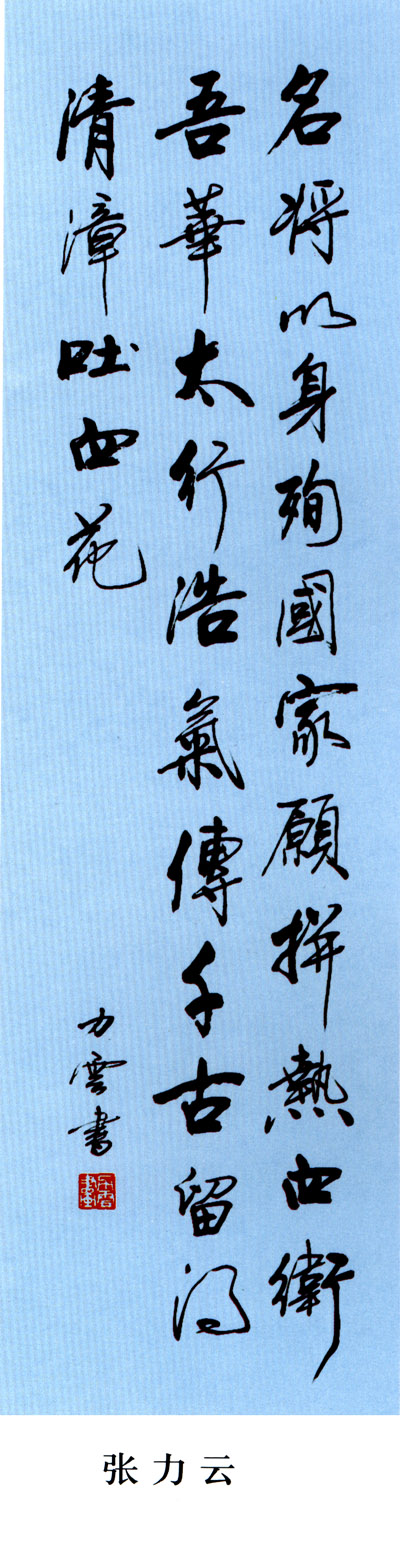 名将以身殉國家願拼熱血衛
吾華太行浩氣傳千古留得
清漳吐血花
力雲書
张力云